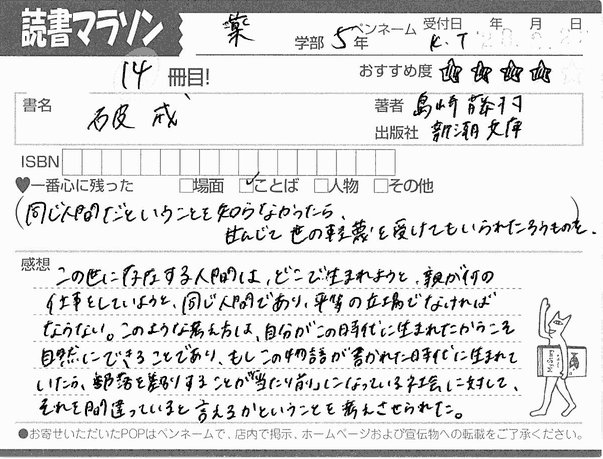 読書マラソン
薬 学部 5年 ペンネーム K.T 受付日 年 月 日
14 冊目!
おすすめ度 ☆☆☆☆
書名 破戒
著者 島崎藤村
出版社 新潮文庫
ISBN
♥一番心に残った □場面 ☑ことば □人物 □その他
(同じ人間だということを知らなかったら、
甘んじて世の軽蔑を受けてもいられたろうものを。
感想
この世に存在する人間は、どこで生まれようと、親が何の
仕事をしていようと、同じ人間であり、平等の立場でなければ
ならない。このような考え方は、自分がこの時代に生まれたからこそ
自然にできることであり、もしこの物語が書かれた時代に生まれて
いたら、部落を差別することが「当たり前」になっている社会に対して、
それを間違っていると言えるかということを考えさせられた。
●お寄せいただいたPOPはペンネームで、店内で掲示、ホームページおよび宣伝物への転載をご了承ください。